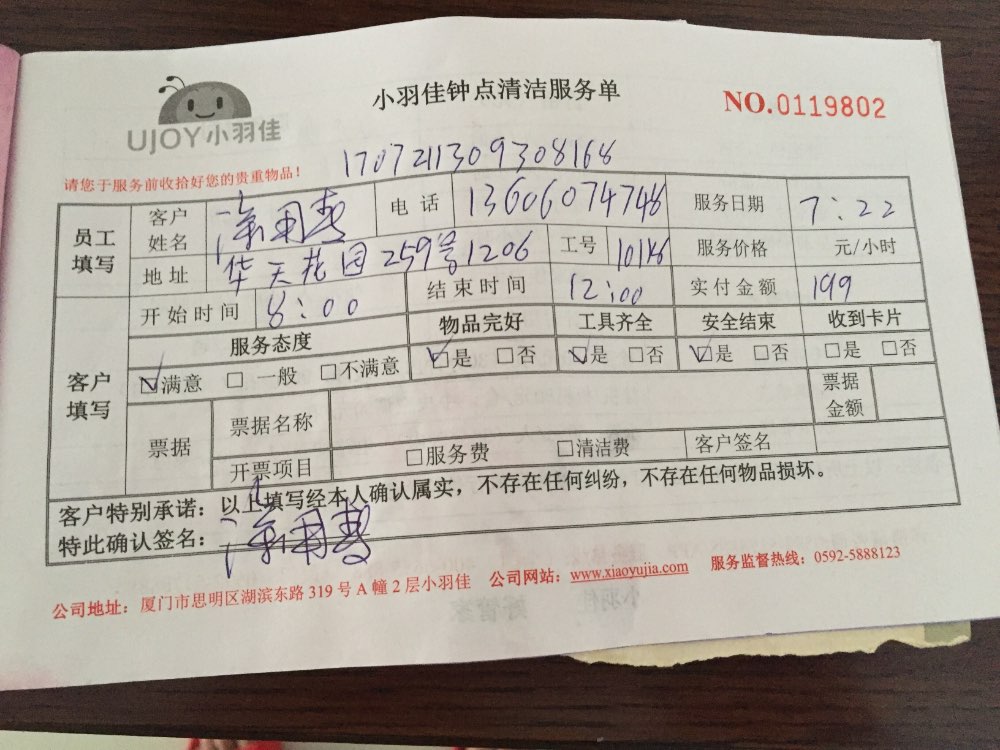 小羽佳钟点清洁服务单
NO.0119802
UJOY小羽佳
1707211309308168
请您于服务前收拾好您的贵重物品！
员工填写 客户姓名 涂用 电话 13606074748 服务日期 7:22
地址 华天花园259号1206 工号 服务价格 元/小时
开始时间 8:00 结束时间 12:00 实付金额 199
客户填写 服务态度 物品完好 工具齐全 安全结束 收到卡片
☑满意 □一般 □不满意 ☑是 □否 ☑是 □否 ☑是 □否 □是 □否
票据 票据名称 票据金额
开票项目 □服务费 □清洁费 客户签名
客户特别承诺：以上填写经本人确认属实，不存在任何纠纷，不存在任何物品损坏。
特此确认签名：涂用
公司地址：厦门市思明区湖滨东路 319 号 A 幢 2 层小羽佳 公司网站：www.xiaoyujia.com 服务监督热线：0592-5888123